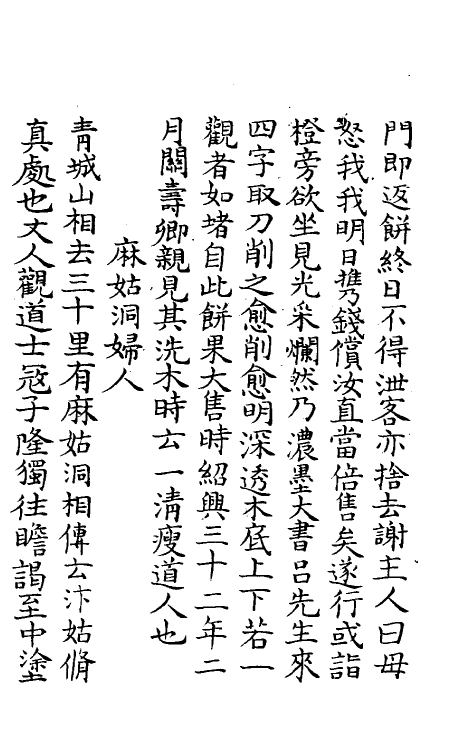 門即返餅終日不得泄客亦捨去謝主人曰毋
怒我我明日攜錢償汝直當倍售矣遂行或詣
橙旁欲坐見光采爛然乃濃墨大書呂先生來
四字取刀削之愈削愈明深透木底上下若一
觀者如堵自此餅果大售時紹興三十二年二
月關壽卿親見其洗木時云一清瘦道人也
麻姑洞婦人
青城山相去三十里有麻姑洞相傳云汴姑脩
真處也丈人觀道士寇子隆獨往瞻謁至中塗